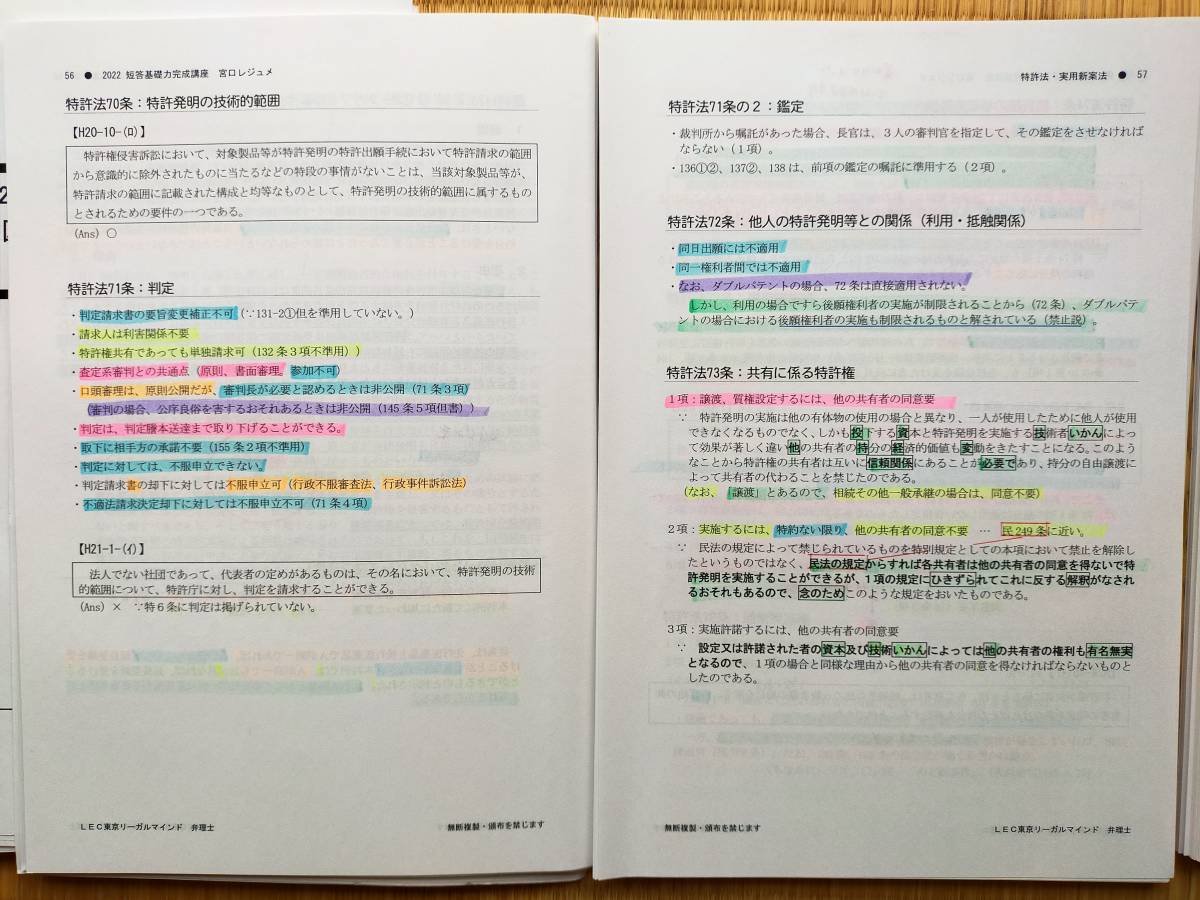 56 ● 2022 短答基礎力完成講座 宮口レジュメ
特許法70条：特許発明の技術的範囲
【H20-10-(ロ)】
特許権侵害訴訟において、対象製品等が特許発明の特許出願手続において特許請求の範囲
から意識的に除外されたものに当たるなどの特段の事情がないことは、当該対象製品等が、
特許請求の範囲に記載された構成と均等なものとして、特許発明の技術的範囲に属するもの
とされるための要件の一つである。
(Ans) ○
特許法71条：判定
・判定請求書の要旨変更補正不可（∵131-2①但を準用していない。）
・請求人は利害関係不要
・特許権共有であっても単独請求可（132条3項不準用））
・査定系審判との共通点（原則、書面審理。参加不可）
・口頭審理は、原則公開だが、審判長が必要と認めるときは非公開（71条3項）
（審判の場合、公序良俗を害するおそれあるときは非公開（145条5項但書））
・判定は、判定謄本送達まで取り下げることができる。
・取下に相手方の承諾不要（155条2項不準用）
・判定に対しては、不服申立できない。
・判定請求書の却下に対しては不服申立可（行政不服審査法、行政事件訴訟法）
・不適法請求決定却下に対しては不服申立不可（71条4項）
【H21-1-(イ)】
法人でない社団であって、代表者の定めがあるものは、その名において、特許発明の技術
的範囲について、特許庁に対し、判定を請求することができる。
(Ans) × ∵特6条に判定は掲げられていない。
LEC東京リーガルマインド 弁理士
無断複製・頒布を禁じます
特許法・実用新案法 ● 57
特許法71条の2：鑑定
・裁判所から嘱託があった場合、長官は、3人の審判官を指定して、その鑑定をさせなければ
ならない（1項）。
・136①②、137②、138は、前項の鑑定の嘱託に準用する（2項）。
特許法72条：他人の特許発明等との関係（利用・抵触関係）
・同日出願には不適用
・同一権利者間では不適用
・なお、ダブルパテントの場合、72条は直接適用されない。
しかし、利用の場合ですら後願権利者の実施が制限されることから（72条）、ダブルパテ
ントの場合における後願権利者の実施も制限されるものと解されている（禁止説）。
特許法73条：共有に係る特許権
1項：譲渡、質権設定するには、他の共有者の同意要
∵ 特許発明の実施は他の有体物の使用の場合と異なり、一人が使用したために他人が使用
できなくなるものでなく、しかも投下する資本と特許発明を実施する技術者いかんによっ
て効果が著しく違い他の共有者の持分の経済的価値も変動をきたすことになる。このよう
なことから特許権の共有者は互いに信頼関係にあることが必要であり、持分の自由譲渡に
よって共有者の代わることを禁じたのである。
（なお、「譲渡」とあるので、相続その他一般承継の場合は、同意不要）
2項：実施するには、特約ない限り、他の共有者の同意不要 … 民249条に近い。
∵ 民法の規定によって禁じられているものを特別規定としての本項において禁止を解除し
たというものではなく、民法の規定からすれば各共有者は他の共有者の同意を得ないで特
許発明を実施することができるが、1項の規定にひきずられてこれに反する解釈がなされ
るおそれもあるので、念のためこのような規定をおいたものである。
3項：実施許諾するには、他の共有者の同意要
∵ 設定又は許諾された者の資本及び技術いかんによっては他の共有者の権利も有名無実
となるので、1項の場合と同様な理由から他の共有者の同意を得なければならないものと
したのである。
無断複製・頒布を禁じます
LEC東京リーガルマインド 弁理士